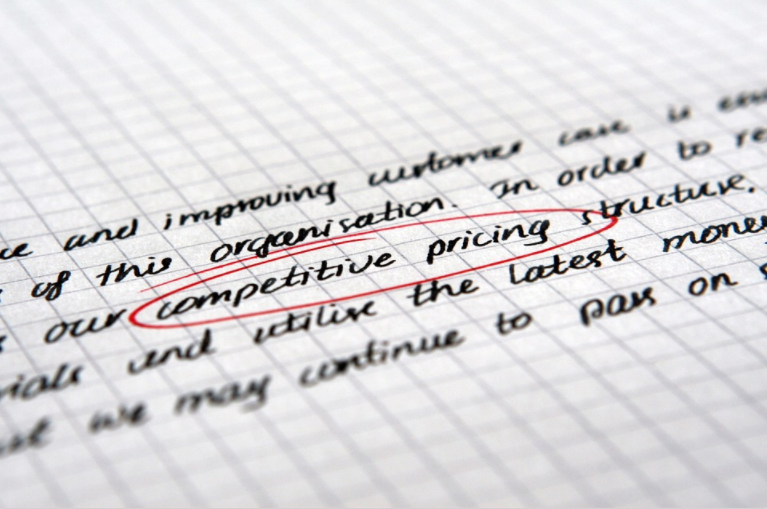 and improving customer care is
of this organisation. In order to
our competitive pricing structure.
and utilise the latest
we may continue to pass on